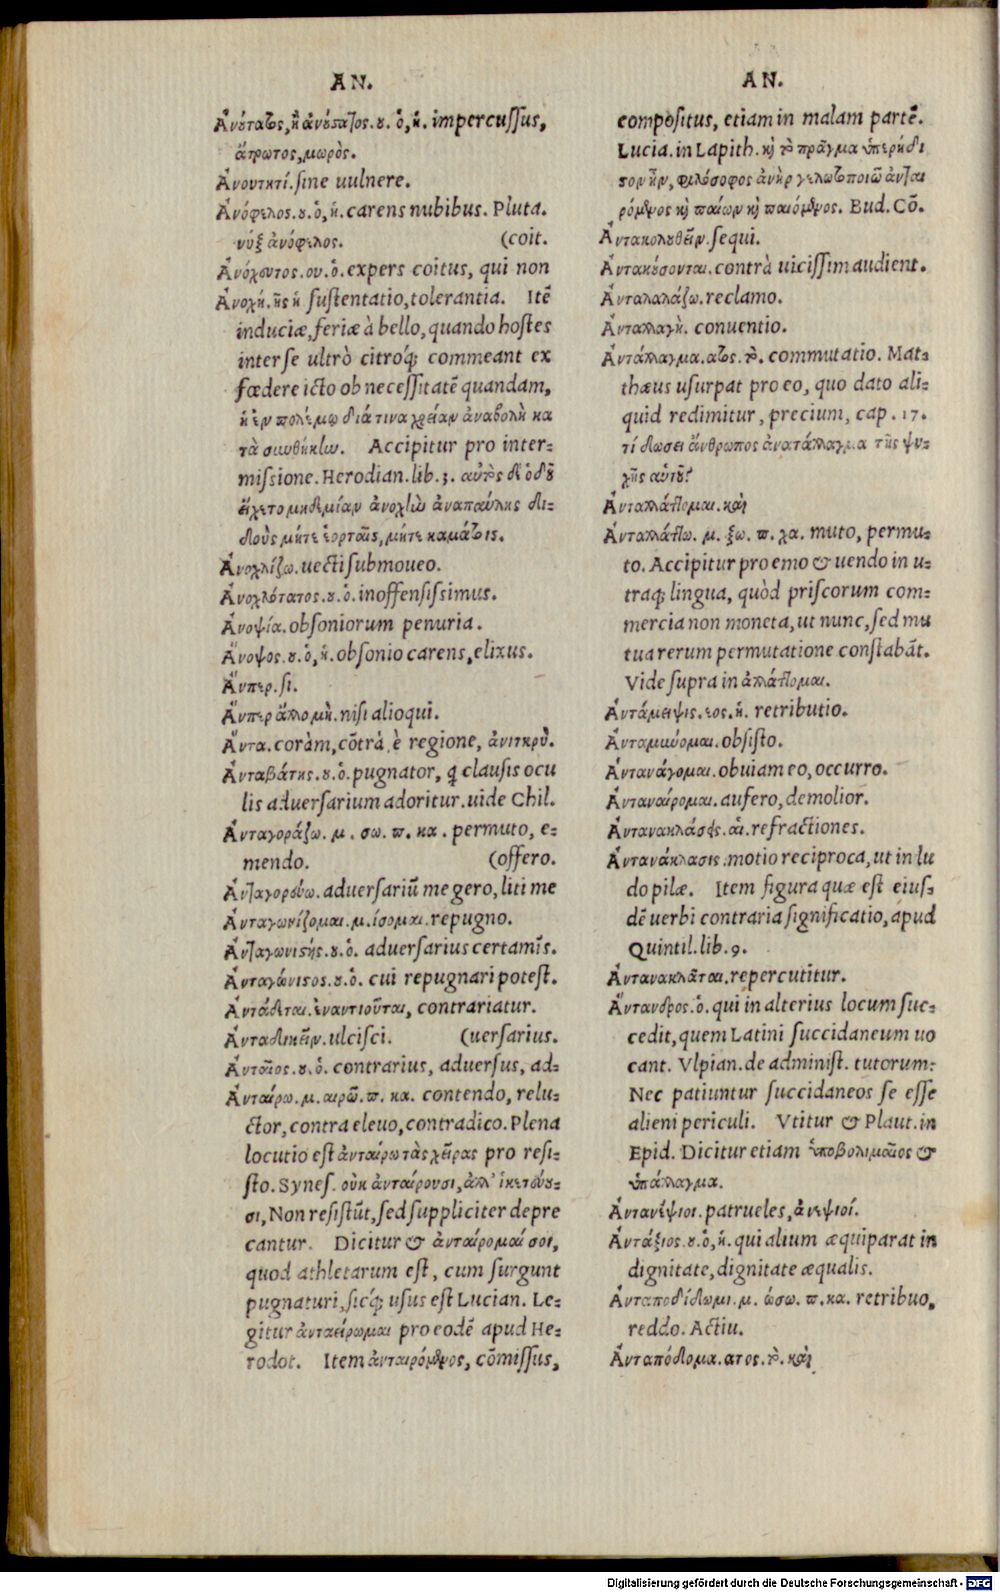 AN.
Ἀνούτατος, ἢ ἀνούστατος. ου. ὁ, ἡ. impercussus,
ἄτρωτος, μωρὸς.
Ἀνουτητί. sine uulnere.
Ἀνόφελος. ου. ὁ, ἡ. carens nubibus. Pluta.
νύξ ἀνόφελος. (coit.
Ἀνόχευτος. ου. ὁ. expers coitus, qui non
Ἀνοχή. ῆς ἡ sustentatio, tolerantia. Itē
induciæ, feriæ à bello, quando hostes
inter se ultrò citróq; commeant ex
fœdere icto ob necessitatē quandam,
ἡ ἐν πολέμῳ διά τινα χρείαν ἀναβολὴ κα
τὰ συνθήκην. Accipitur pro inter-
missione. Herodian. lib. 3. αὐτὸς δὲ ὁδοῦ
εἴχετο μηδεμίαν ἀνοχὴν ἀναπαύλης δι-
δοὺς μήτε ἑορταῖς, μήτε καμάτοις.
Ἀνοχλίζω. uecti submoueo.
Ἀνοχλότατος. ου. ὁ. inoffensissimus.
Ἀνοψία. obsoniorum penuria.
Ἄνοψος. ου. ὁ, ἡ. obsonio carens, elixus.
Ἄνπερ. si.
Ἄνπερ ἄλλο μὴ. nisi alioqui.
Ἄντα. coràm, cōtrà, è regione, ἀντικρὺ.
Ἀνταβάτης. ου. ὁ. pugnator, q clausis ocu
lis aduersarium adoritur. uide Chil.
Ἀνταγοράζω. μ. σω. π. κα. permuto, e-
mendo. (offero.
Ἀνταγορεύω. aduersariū me gero, liti me
Ἀνταγωνίζομαι. μ. ίσομαι. repugno.
Ἀνταγωνιστής. ου. ὁ. aduersarius certamīs.
Ἀνταγώνιστος. ου. ὁ. cui repugnari potest.
Ἀντάδεται. ἐναντιοῦται, contrariatur.
Ἀνταδικεῖν. ulcisci. (uersarius.
Ἀνταῖος. ου. ὁ. contrarius, aduersus, ad-
Ἀνταίρω. μ. αιρῶ. π. κα. contendo, relu-
ctor, contra eleuo, contradico. Plena
locutio est ἀνταίρω τὰς χεῖρας pro resi-
sto. Synes. οὐκ ἀνταίρουσι, ἀλλ' ἱκετεύου-
σι, Non resistūt, sed suppliciter depre
cantur. Dicitur & ἀνταίρομαί σοι,
quod athletarum est, cum surgunt
pugnaturi, sicq́; usus est Lucian. Le-
gitur ἀνταείρωμαι pro eodē apud He-
rodot. Item ἀνταιρόμενος, cōmissus,
AN.
compositus, etiam in malam partē.
Lucia. in Lapith. καὶ τὸ πρᾶγμα ὑπερήδι
στον ἦν, φιλόσοφος ἀνὴρ γελωτοποιῷ ἀνται
ρόμενος καὶ παίων καὶ παιόμενος. Bud. Cō.
Ἀντακολουθεῖν. sequi.
Ἀντακούσονται. contrà uicissim audient.
Ἀνταλαλάζω. reclamo.
Ἀνταλλαγὴ. conuentio.
Ἀντάλλαγμα. ατος. τὸ. commutatio. Mat-
thæus usurpat pro eo, quo dato ali-
quid redimitur, precium, cap. 17.
τί δώσει ἄνθρωπος ἀνατάλλαγμα τῆς ψυ-
χῆς αὑτοῦ?
Ἀνταλλάττομαι. καὶ
Ἀνταλλάττω. μ. ξω. π. χα. muto, permu-
to. Accipitur pro emo & uendo in u-
traq; lingua, quòd priscorum com-
mercia non moneta, ut nunc, sed mu
tua rerum permutatione constabāt.
Vide supra in ἀλλάττομαι.
Ἀντάμειψις. εος. ἡ. retributio.
Ἀνταμύνομαι. obsisto.
Ἀντανάγομαι. obuiam eo, occurro.
Ἀνταναίρομαι. aufero, demolior.
Ἀντανακλάσεις. αἱ. refractiones.
Ἀντανάκλασις. motio reciproca, ut in lu
do pilæ. Item figura quæ est eius-
dē uerbi contraria significatio, apud
Quintil. lib. 9.
Ἀντανακλᾶται. repercutitur.
Ἄντανδρος. ὁ. qui in alterius locum suc-
cedit, quem Latini succidaneum uo
cant. Vlpian. de administ. tutorum:
Nec patiuntur succidaneos se esse
alieni periculi. Vtitur & Plaut. in
Epid. Dicitur etiam ὑποβολιμαῖος &
ὑπάλλαγμα.
Ἀντανέψιοι. patrueles, ἀνεψιοί.
Ἀντάξιος. ου. ὁ, ἡ. qui alium æquiparat in
dignitate, dignitate æqualis.
Ἀνταποδίδωμι. μ. ώσω. π. κα. retribuo,
reddo. Actiu.
Ἀνταπόδομα. ατος. τὸ. καὶ
Digitalisierung gefördert durch die Deutsche Forschungsgemeinschaft - DFG